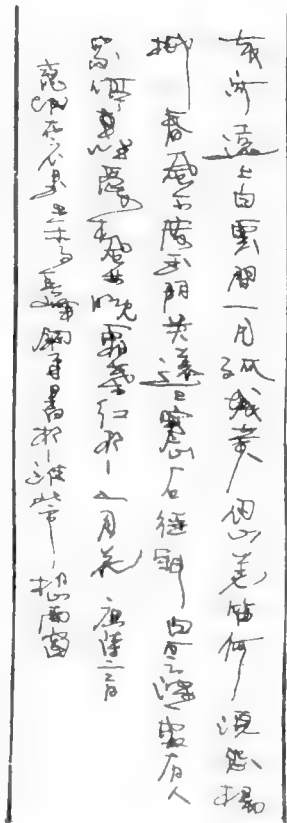 黄河遠上白雲間一片孤城萬仞山羌笛何須怨楊
柳春風不度玉門遠上寒山石徑斜白雲深處有人
家停車坐愛楓林晚霜葉紅於二月花 唐詩二首
鋼筆書於雨窗